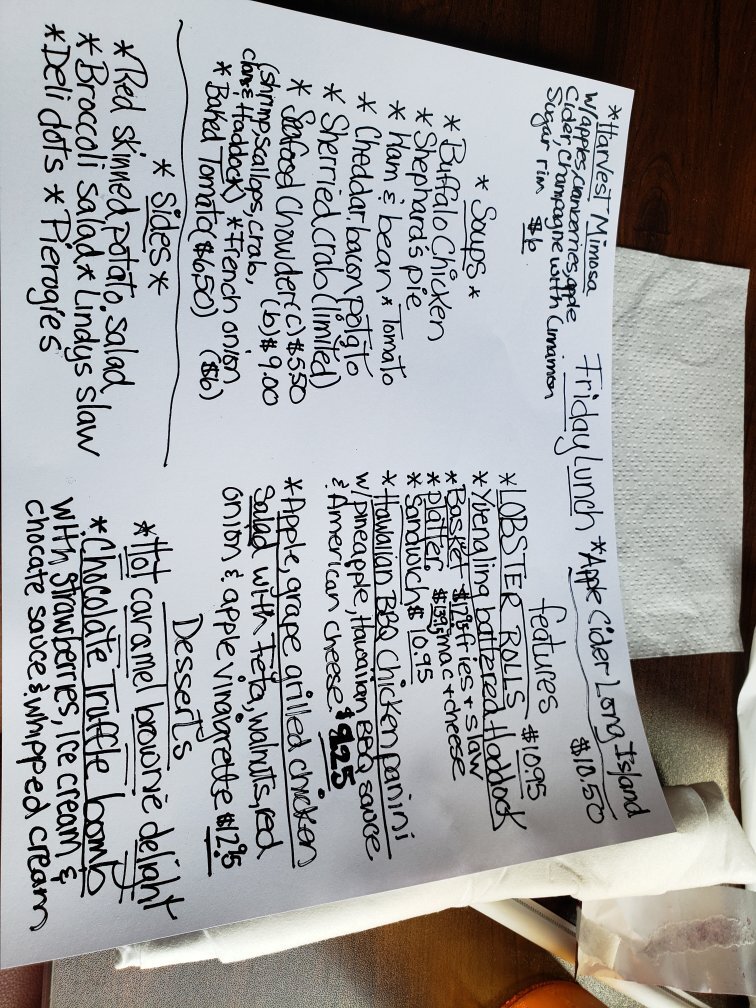 *Harvest Mimosa
w/apples, cranberries, apple
cider, champagne with Cinnamon
Sugar rim $6
Friday Lunch
*Apple Cider Long Island
$10.50
* Soups *
* Buffalo Chicken
* Shephard's pie
* Ham & bean * Tomato
* Cheddar, bacon potato
* Sherried crab (limited)
* Seafood Chowder (c) $5.50
(shrimp, scallops, crab, (b) $9.00
clams & Haddock) * French onion
* Baked Tomato ($6.50) ($6)
* Sides *
* Red skinned potato salad
* Broccoli salad * Lindys slaw
* Deli dots * Pierogies
features
* LOBSTER ROLLS $10.95
* Yuengling battered Haddock
*Basket $12.95 fries + slaw
*platter $13.95 mac + cheese
* Sandwich $10.95
*Hawaiian BBQ Chicken panini
w/pineapple, Hawaiian BBQ sauce
& American cheese $9.25
*Apple, grape grilled chicken
Salad with feta, walnuts, red
onion & apple vinaigrette $12.95
Desserts
*Hot caramel brownie delight
*Chocolate Truffle bomb
with strawberries, ice cream &
chocate sauce & whipped cream